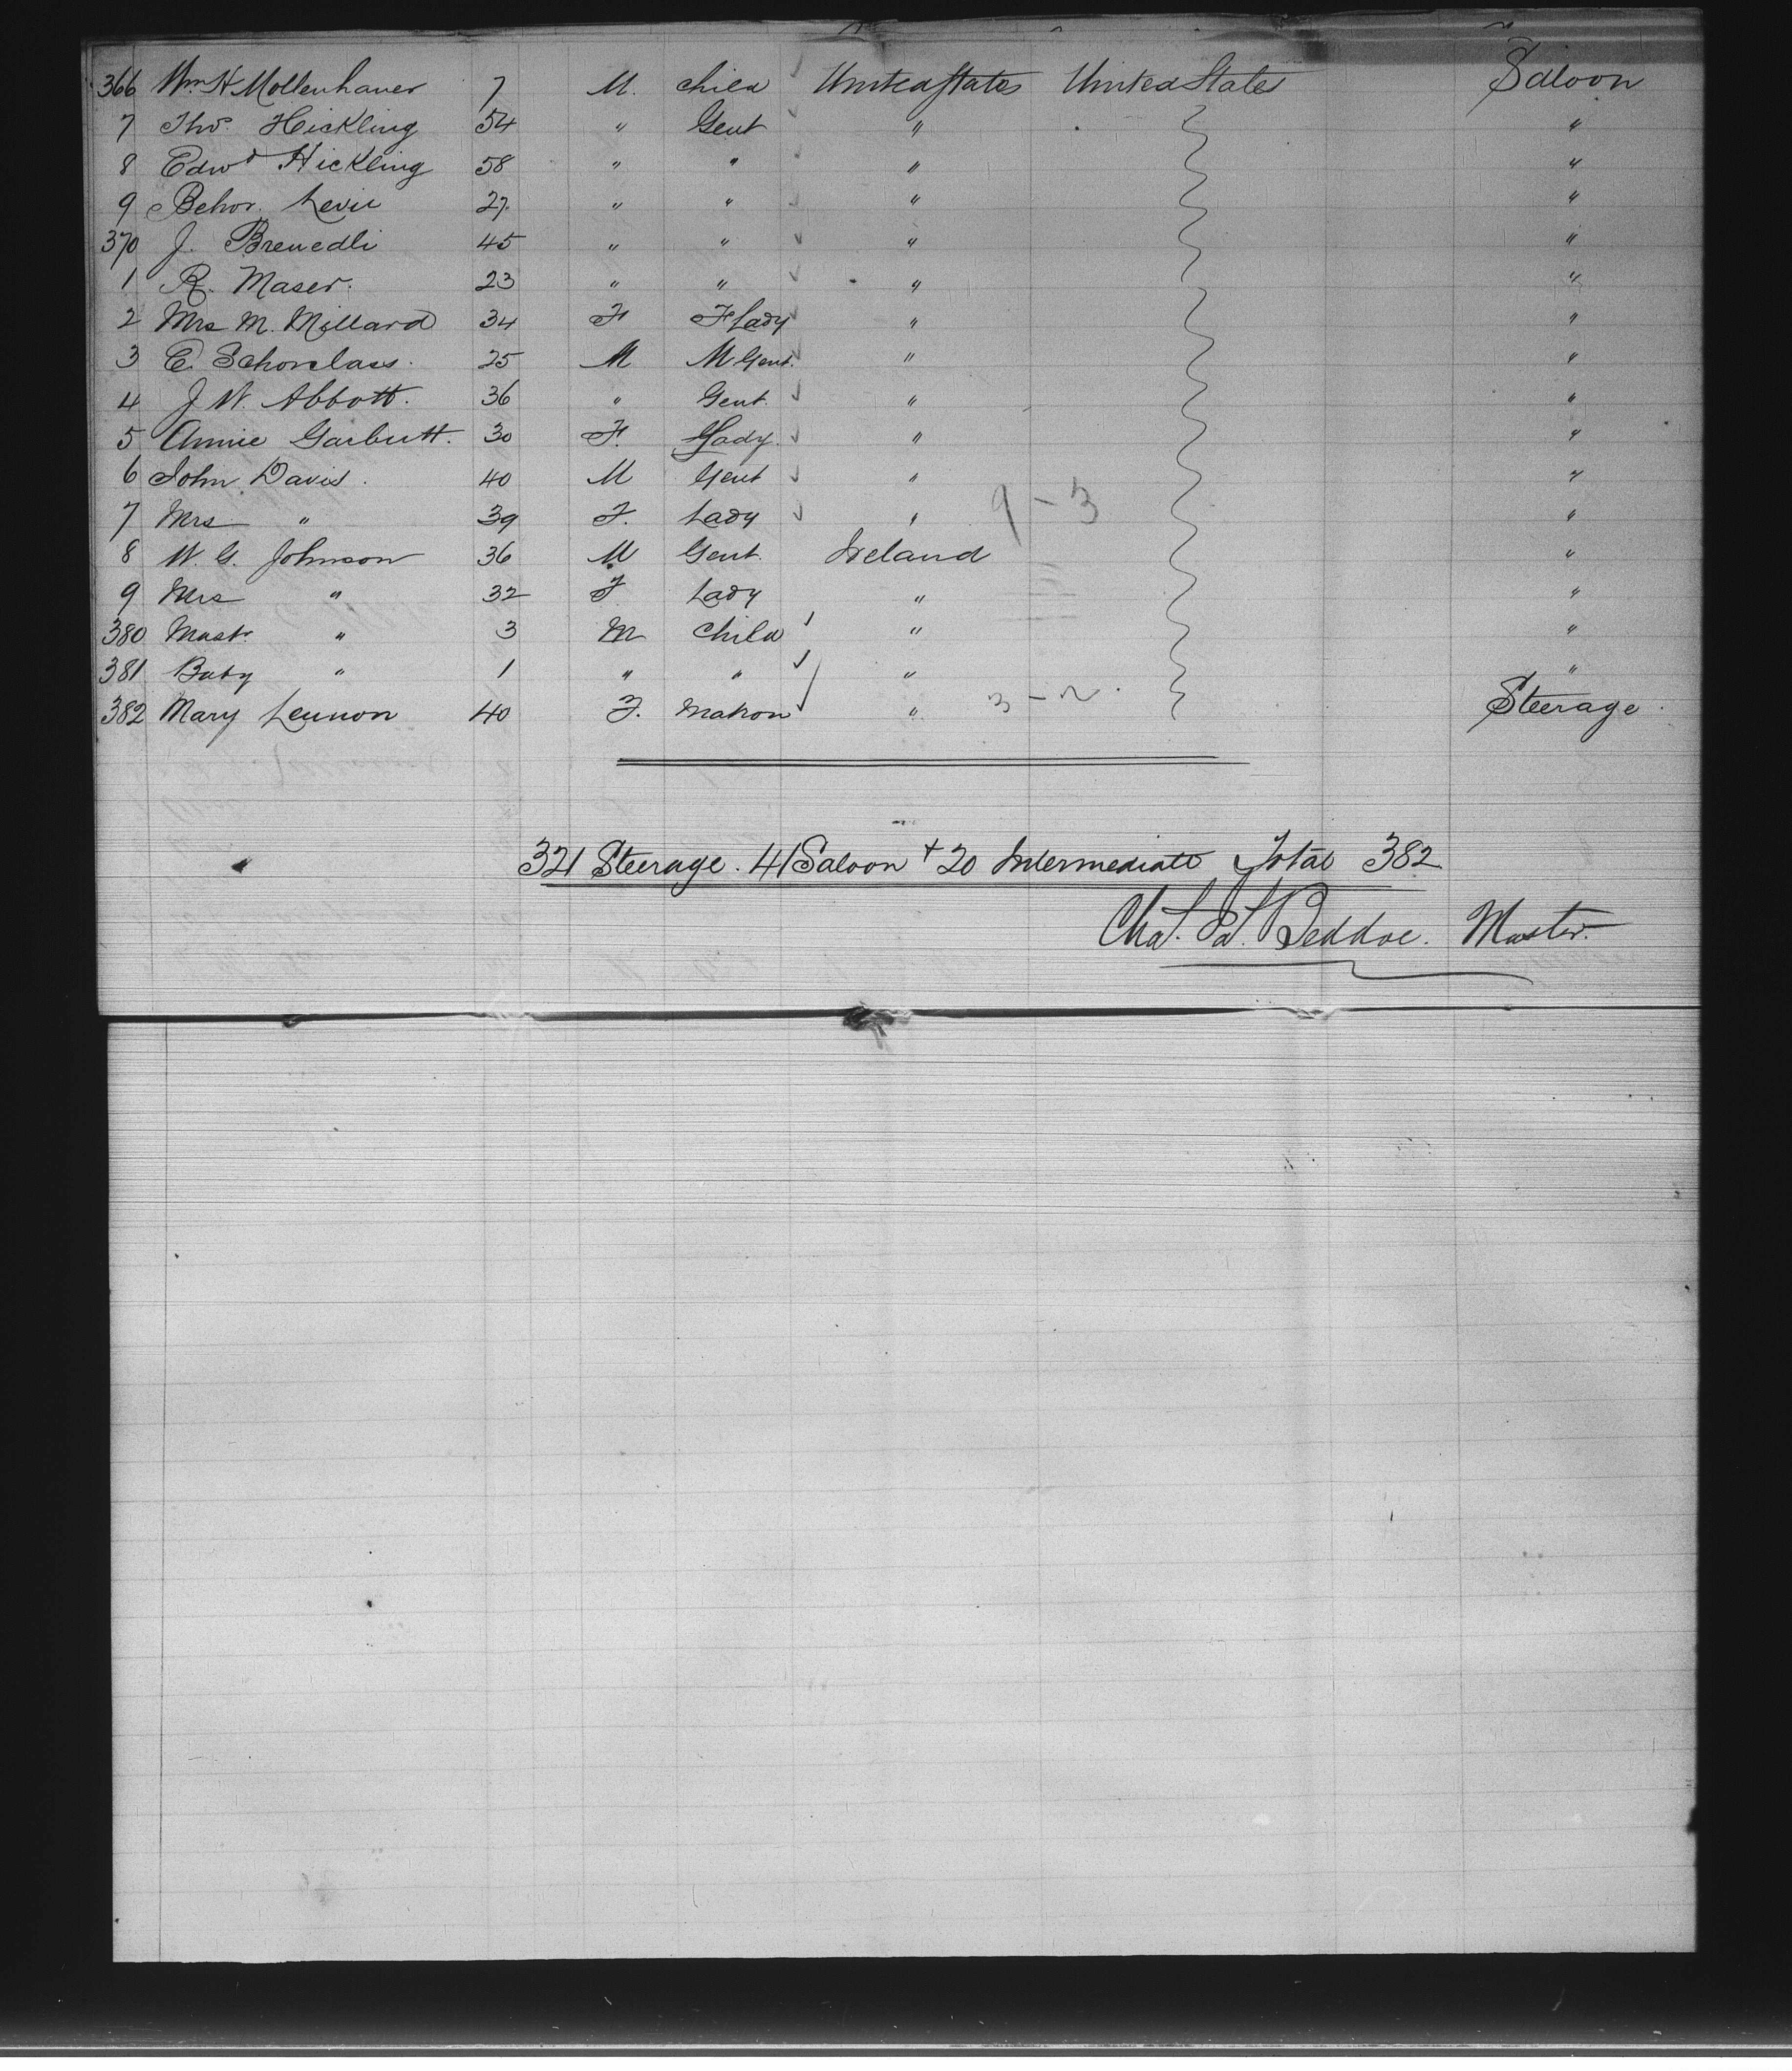 366 Wm H Mollenhauer 7 M. Child United States United States Saloon
7 Tho.s Hickling 54 " Gent " "
8 Edwd Hickling 58 " " " "
9 Behor. Levie 27. " " " "
370 J. Brenedli 45 " " " "
1 R. Maser. 23 " " " "
2 Mrs M. Millard 34 F F Lady " "
3 E. Schonclass. 25 M M Gent. " "
4 J. W. Abbott. 36 " Gent. " "
5 Annie Garbutt. 30 F. Lady. " "
6 John Davis. 40 M Gent " "
7 Mrs " 39 F. Lady " 9-3 "
8 W. G. Johnson 36 M Gent. Ireland "
9 Mrs " 32 F Lady " "
380 Mast. " 3 M Child " "
381 Baby " 1 " " " "
382 Mary Lennon 40 F. Matron " 3-2. Steerage.
321 Steerage. 41 Saloon + 20 Intermediate Total 382
Chas. Beddoe. Master.